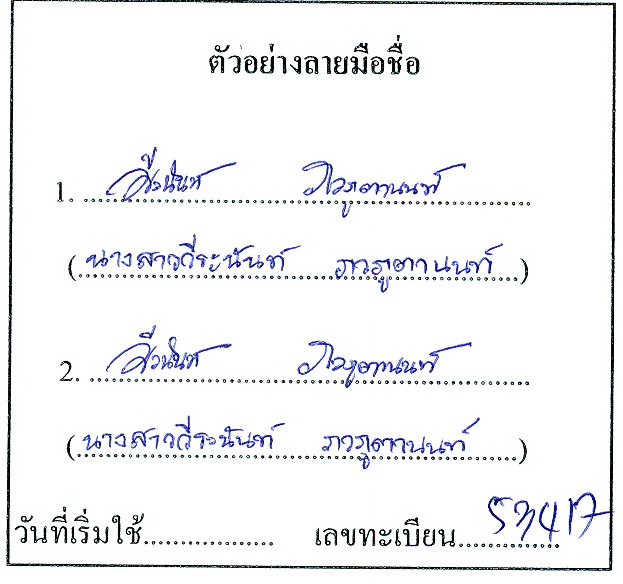 ตัวอย่างลายมือชื่อ
1. วีระนันท์ ภวภูตานนท์
(นางสาววีระนันท์ ภวภูตานนท์)
2. วีระนันท์ ภวภูตานนท์
(นางสาววีระนันท์ ภวภูตานนท์)
วันที่เริ่มใช้.................. เลขทะเบียน 53417